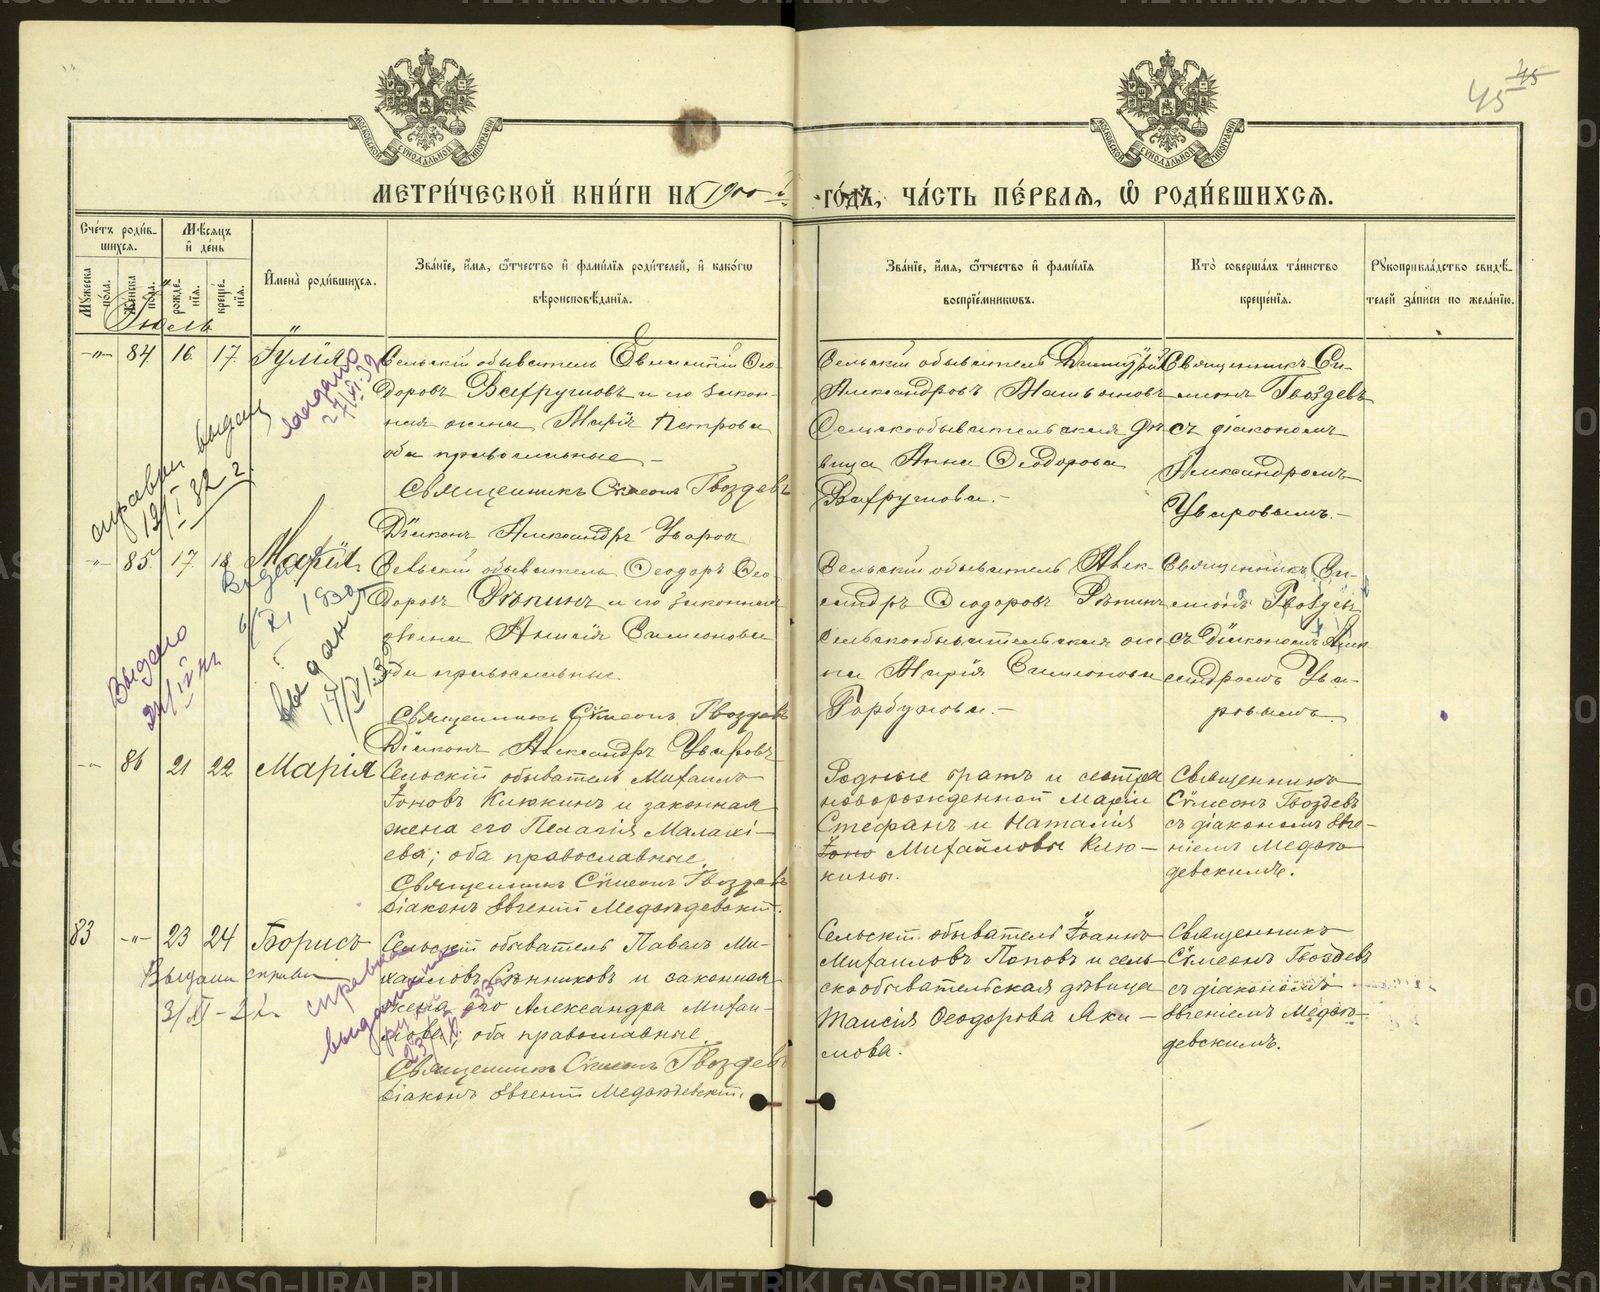 45
45
МЕТРИ́ЧЕСКОЙ КНИ́ГИ НА 1900 й
ГО́ДЪ, ЧА́СТЬ ПЕ́РВАѦ, Ѽ РОДИ́ВШИХСѦ.
Сче́тъ роди́в-
шихсѧ.
Мѣ́сѧцъ
и҆ де́нь
Мꙋ́жеска
по́ла.
Же́нска
по́ла.
рожде́-
нїѧ.
креще́-
нїѧ.
И҆мена̀ роди́вшихсѧ.
Зва́нїе, и҆́мѧ, ѻ҆́тчество и҆ фами́лїѧ роди́телей, и҆ како́гѡ
вѣроисповѣ́данїѧ.
Зва́нїе, и҆́мѧ, ѻ҆́тчество и҆ фами́лїѧ
воспрїе́мникѡвъ.
Кто̀ соверша́лъ та́инство
креще́нїѧ.
Рꙋкоприкла́дство свидѣ́-
телей за́писи по жела́нїю.
Іюль
-"- 84 16 17 Іулія
Сельскій обыватель Евлампій Ѳео-
доровъ Вахрушовъ и его закон-
ная жена Марія Петрова
оба православные
Священникъ Сѵмеонъ Гвоздевъ
Діаконъ Александръ Уваровъ
Сельскій обыватель Димитрій
Александровъ
Сельскообывательская дѣ-
вица Анна Ѳеодорова
Вахрушова.
Священникъ Си-
меонъ Гвоздевъ
съ діакономъ
Александромъ
Уваровымъ.
выдано
справки выдан
12/I 32 г.
-"- 85 17 18 Марія
Сельскій обыватель Ѳеодоръ Ѳео-
доровъ Рѣпинъ и его законная
жена Анисія Симеонова
оба православные.
Священникъ Сѵмеонъ Гвоздевъ
Діаконъ Александръ Уваровъ
Сельскій обыватель Алек-
сандръ Ѳеодоровъ Рѣпинъ
сельскообывательская же-
на Марія Симеонова
Горбунова.
Священникъ Си-
меонъ Гвоздевъ
съ діакономъ Алек
сандромъ Ува-
ровымъ
Выдано
выдано
-"- 86 21 22 Марія
Сельскій обыватель Михаилъ
Іоновъ Клюкинъ и законная
жена его Пелагія Малахі-
ева; оба православные.
Священникъ Сѵмеонъ Гвоздевъ
діаконъ Евгеній Медвѣдевскій.
Родные братъ и сестра
новорожденной Маріи
Стефанъ и Наталія
Іоно Михаиловы Клю-
кины.
Священникъ
Сѵмеонъ Гвоздевъ
съ діакономъ Евге-
ніемъ Медвѣ-
девскимъ.
83 -"- 23 24 Борисъ
Сельскій обыватель Павелъ Ми-
хаиловъ Санниковъ и законная
жена его Александра Михаи-
лова; оба православные.
Священникъ Сѵмеонъ Гвоздевъ
діаконъ Евгеній Медвѣдевскій.
Сельскій обыватель Іоаннъ
Михаиловъ Поповъ и сель-
скообывательская дѣвица
Таисія Ѳеодорова Яки-
мова.
Священникъ
Сѵмеонъ Гвоздевъ
съ діакономъ
Евгеніемъ Медвѣ-
девскимъ.
Выдана справка
справка
выдана
METRIKI.GASO-URAL.RU